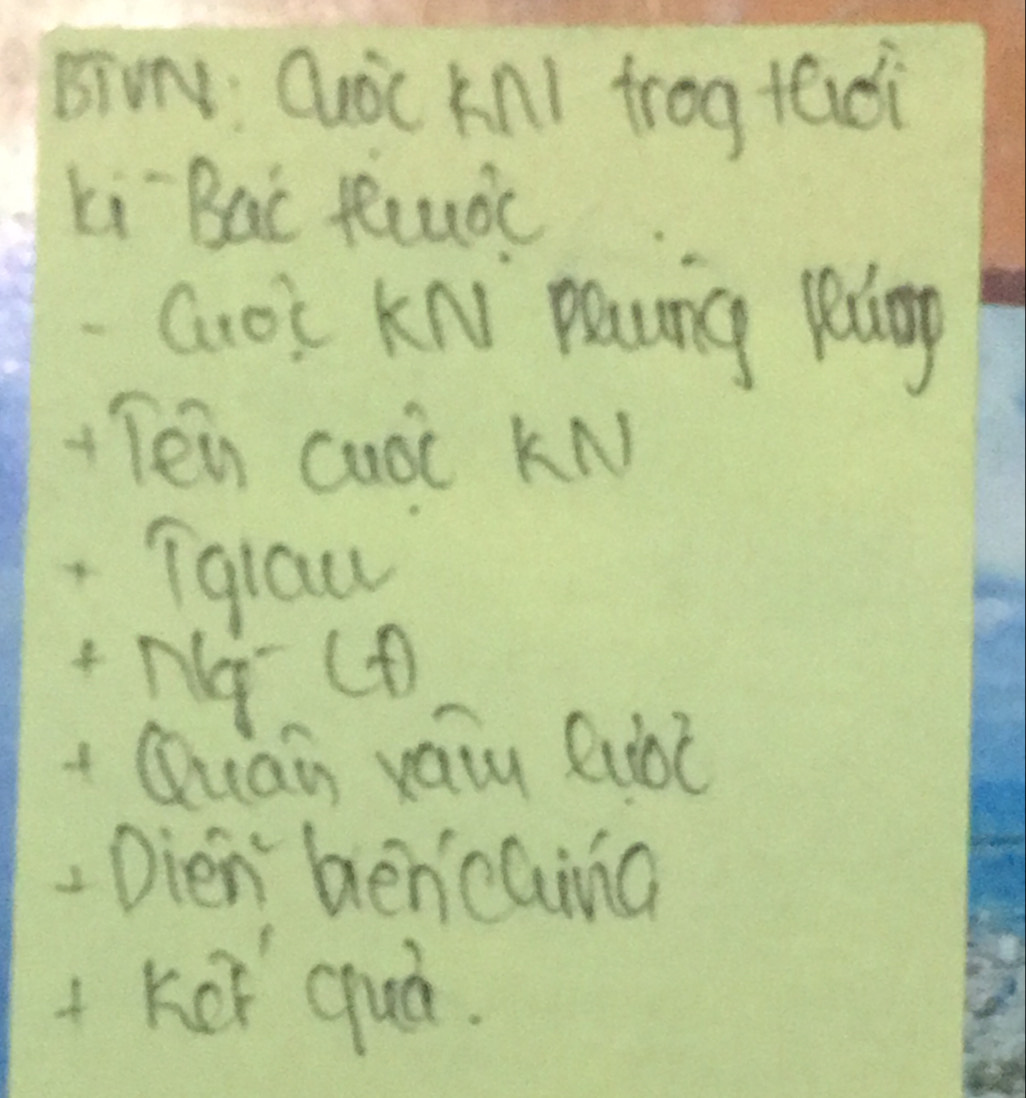 BTVN: Cuộc KN1 trog thời
kì Bắc thuộc
- Cuộc KN Phùng Hưng
+ Tên cuộc KN
+ Tgian
+ Ng LĐ
+ Quân xâm lược
+ Diễn biến chính
+ Kết quả.